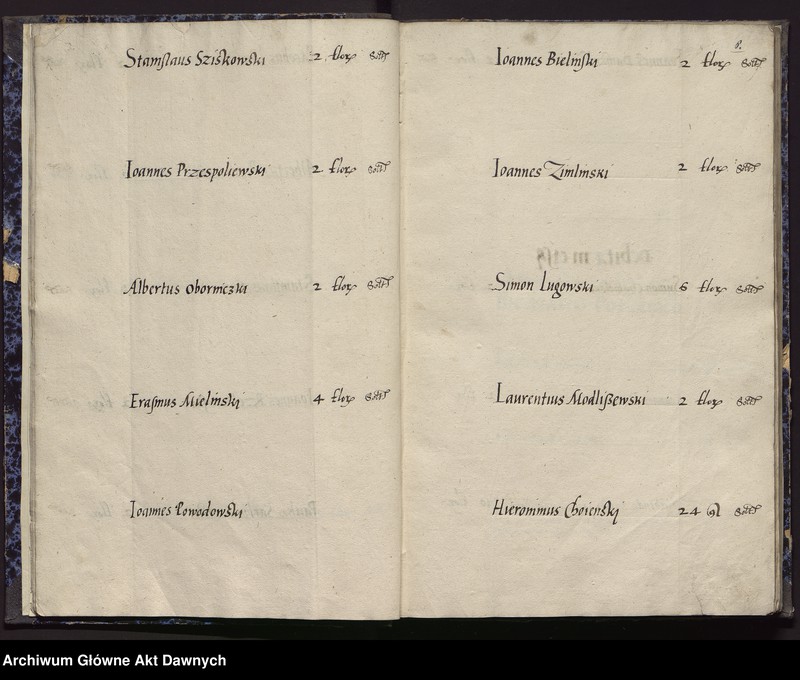 Stanislaus Sziskowski 2 flor
Ioannes Przespoliewski 2 flor
Albertus Oborniczki 2 flor
Erasmus Mielinski 4 flor
Ioannes Powodowski
8.
Ioannes Bielinski 2 flor
Ioannes Zimlinski 2 flor
Simon Lugowski 6 flor
Laurentius Modlißewski 2 flor
Hieronimus Choienski 24
Archiwum Główne Akt Dawnych